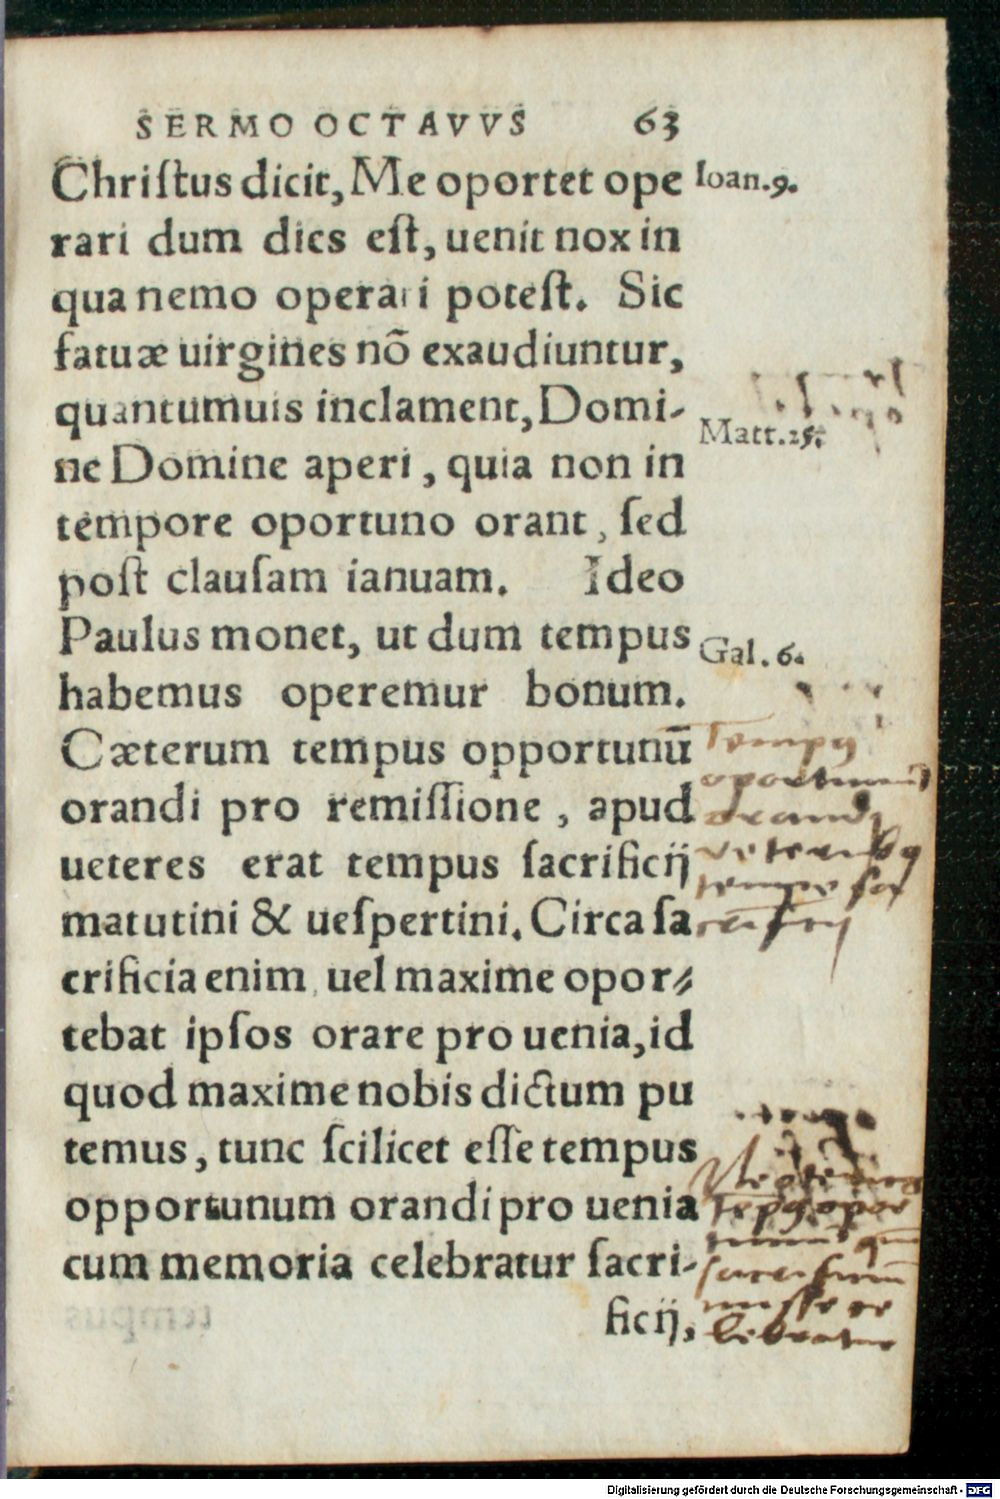 SERMO OCTAVVS 63
Chriſtus dicit, Me oportet ope
Ioan.9.
rari dum dies eſt, uenit nox in
qua nemo operari poteſt. Sic
fatuæ uirgines nõ exaudiuntur,
quantumuis inclament, Domi-
Matt.25.
ne Domine aperi, quia non in
tempore oportuno orant, ſed
poſt clauſam ianuam. Ideo
Paulus monet, ut dum tempus
Gal. 6.
habemus operemur bonum.
Cæterum tempus opportunū
orandi pro remiſſione, apud
ueteres erat tempus ſacrificij
matutini & ueſpertini. Circa ſa
crificia enim uel maxime opor-
tebat ipſos orare pro uenia, id
quod maxime nobis dictum pu
temus, tunc ſcilicet eſſe tempus
opportunum orandi pro uenia
cum memoria celebratur ſacri-
ficij,
oportunū
orandi
libratur
Digitalisierung gefördert durch die Deutsche Forschungsgemeinschaft - DFG